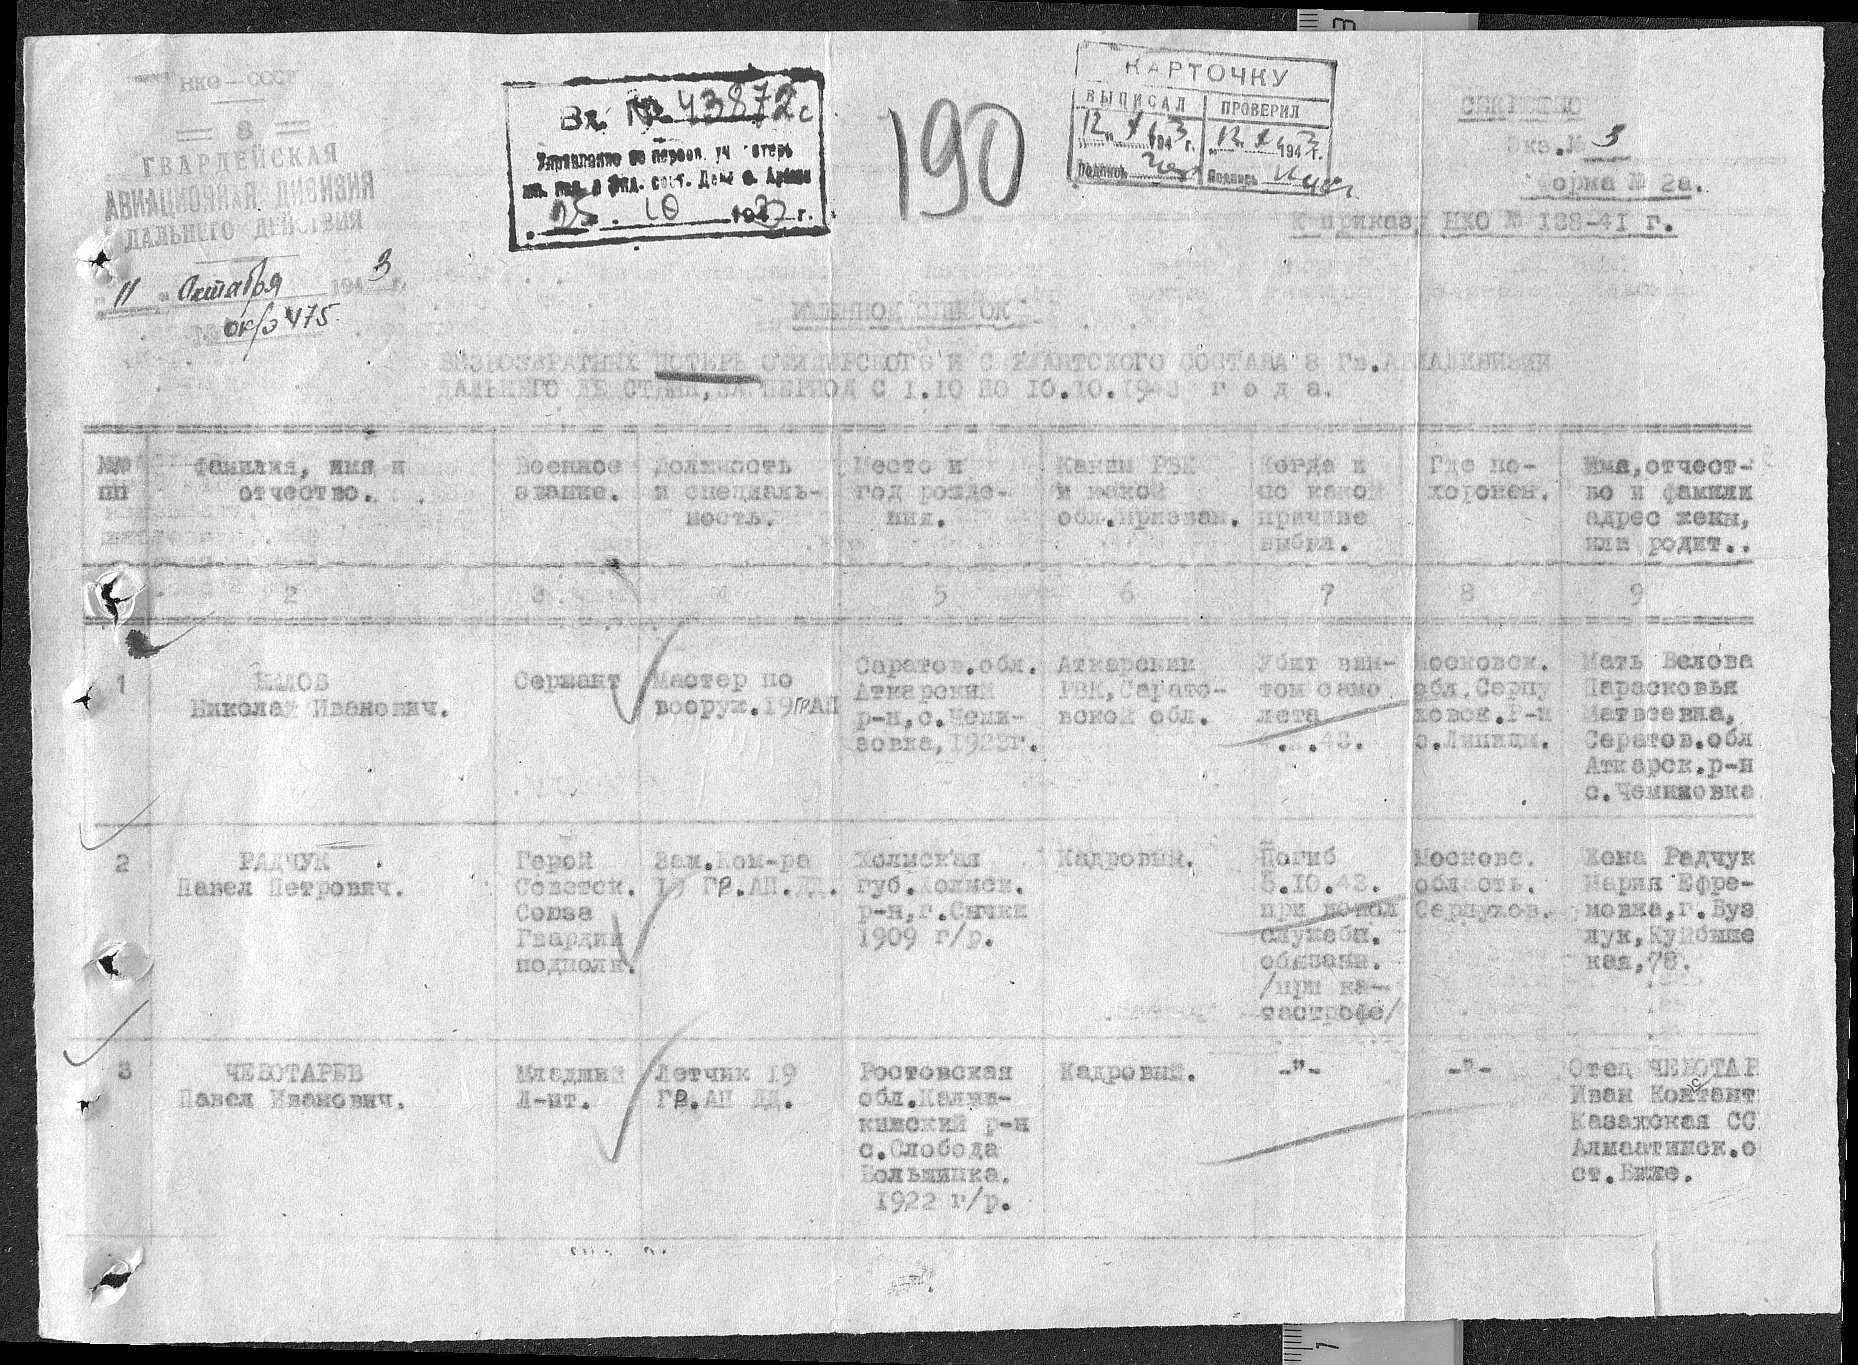 НКО — СССР
8
ГВАРДЕЙСКАЯ
АВИАЦИОННАЯ ДИВИЗИЯ
ДАЛЬНЕГО ДЕЙСТВИЯ
11 Октября 1943 г.
475
Вх. № 43872с
Управление по персон. уч потерь
25. 10 1943 г.
190
КАРТОЧКУ
ВЫПИСАЛ ПРОВЕРИЛ
12 X 1943 г. 12 X 1943 г.
Подпись Подпись
СЕКРЕТНО
Экз.№ 3
Форма № 2а.
К приказу НКО № 138-41 г.
ИМЕННОЙ СПИСОК
БЕЗВОЗВРАТНЫХ ПОТЕРЬ ОФИЦЕРСКОГО И СЕРЖАНТСКОГО СОСТАВА 8 Гв.АВИАДИВИЗИИ
ДАЛЬНЕГО ДЕЙСТВИЯ, ЗА ПЕРИОД С 1.10 ПО 10.10.1943 г о д а.
№№
пп
Фамилия, имя и
отчество.
Военное
звание.
Должность
и специаль-
ность.
Место и
год рожде-
ния.
Каким РВК
и какой
обл.призван.
Когда и
по какой
причине
выбыл.
Где по-
хоронен.
Имя,отчест-
во и фамили
адрес жены,
или родит..
1 2 3 4 5 6 7 8 9
1
Николай Иванович.
Сержант
Мастер по
вооруж.19ГвАП
Саратов.обл.
Аткарский
р-н,с.Чеми-
зовка,1922г.
Аткарским
РВК,Сарато-
вской обл.
Убит вин-
том само
лета
.43.
Московск.
обл.Серпу
ховск.Р-н
с.Липицы.
Мать Белова
Парасковья
Матвеевна,
Саратов.обл
Аткарск.р-н
с.Чемизовка
2
РАДЧУК
Павел Петрович.
Герой
Советск.
Союза
Гвардии
подполк.
Зам.Ком-ра
19 ГВ.АП.ДД.
Холмская
губ.Холмск.
р-н,г.Сычки
1909 г/р.
Кадровый.
Погиб
8.10.43.
при испол
служебн.
обязанн.
/при ка-
тастрофе/
Московс.
область.
Серпухов.
Жена Радчук
Мария Ефре-
мовна,г.Буз
лук,Куйбыше
кая,78.
3
ЧЕБОТАРЕВ
Павел Иванович.
Младший
Л-нт.
Летчик 19
ГВ.АП ДД.
Ростовская
обл.Калми-
кинский р-н
с.Слобода
Большинка.
1922 г/р.
Кадровый.
-"-
-"-
Отец ЧЕБОТАР
Иван Констант
Казахская СС
Алмаатинск.о
ст.Бише.